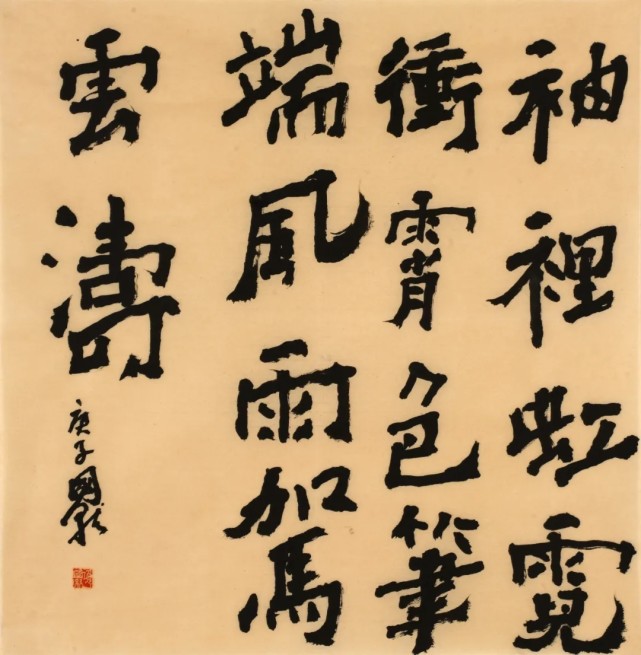 袖裡虹霓
衝霄色筆
端風雨駕
雲濤
庚子國